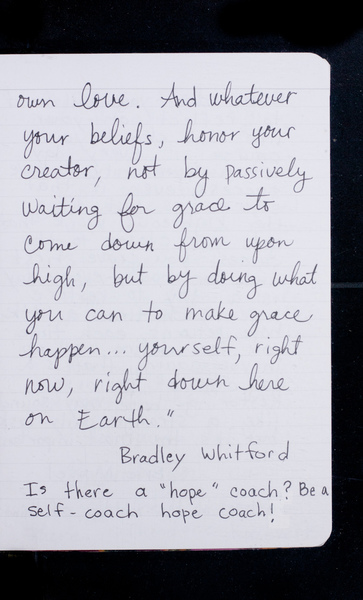 own love. And whatever
your beliefs, honor your
creator, not by passively
waiting for grace to
come down from upon
high, but by doing what
you can to make grace
happen... yourself, right
now, right down here
on Earth."
Bradley Whitford
Is there a "hope" coach? Be a
self-coach hope coach!